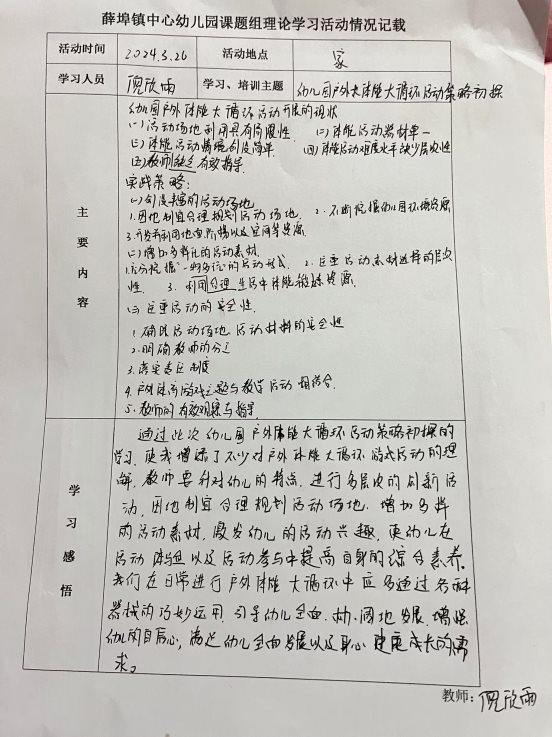 薛埠镇中心幼儿园课题组理论学习活动情况记载
活动时间 2024.3.26 活动地点 家
学习人员 倪欣雨 学习、培训主题 幼儿园户外大体能大循环活动策略初探
主要内容
幼儿园户外体能大循环活动开展的现状
(一)活动场地利用具有局限性 (二)体能活动器材单一
(三)体能活动情境创设简单 (四)体能活动难度水平缺少层次性
(五)教师缺乏有效指导
实践策略:
(一)创设丰富的活动场地
1.因地制宜合理规划活动场地. 2.不断挖掘幼儿园环境资源
3.开发和利用地面阶梯以及空间等资源
(二)增加多样化的活动素材
1.充分挖掘"一物多玩"的活动形式. 2.注重活动素材选择的层次
性. 3.利用合理生活中体能锻炼资源.
(三)注重活动的安全性.
1.确保活动场地、活动材料的安全性
2.明确教师的分工
3.落实责任制度
4.户外体育游戏主题与教学活动相结合.
5.教师的有效观察与指导
学习感悟
通过此次幼儿园户外体能大循环活动策略初探的
学习,使我增添了不少对户外体能大循环游戏活动的理
解,教师要针对幼儿的特点,进行多层次的创新活
动,因地制宜合理规划活动场地,增加多样
的活动素材,激发幼儿的活动兴趣,使幼儿在
活动体验以及活动参与中提高自身的综合素养.
我们在日常进行户外体能大循环中应多通过各种
器械的巧妙运用,引导幼儿全面、协调地发展,增强
幼儿的自信心,满足幼儿全面发展以及身心健康成长的需
求。
教师:倪欣雨